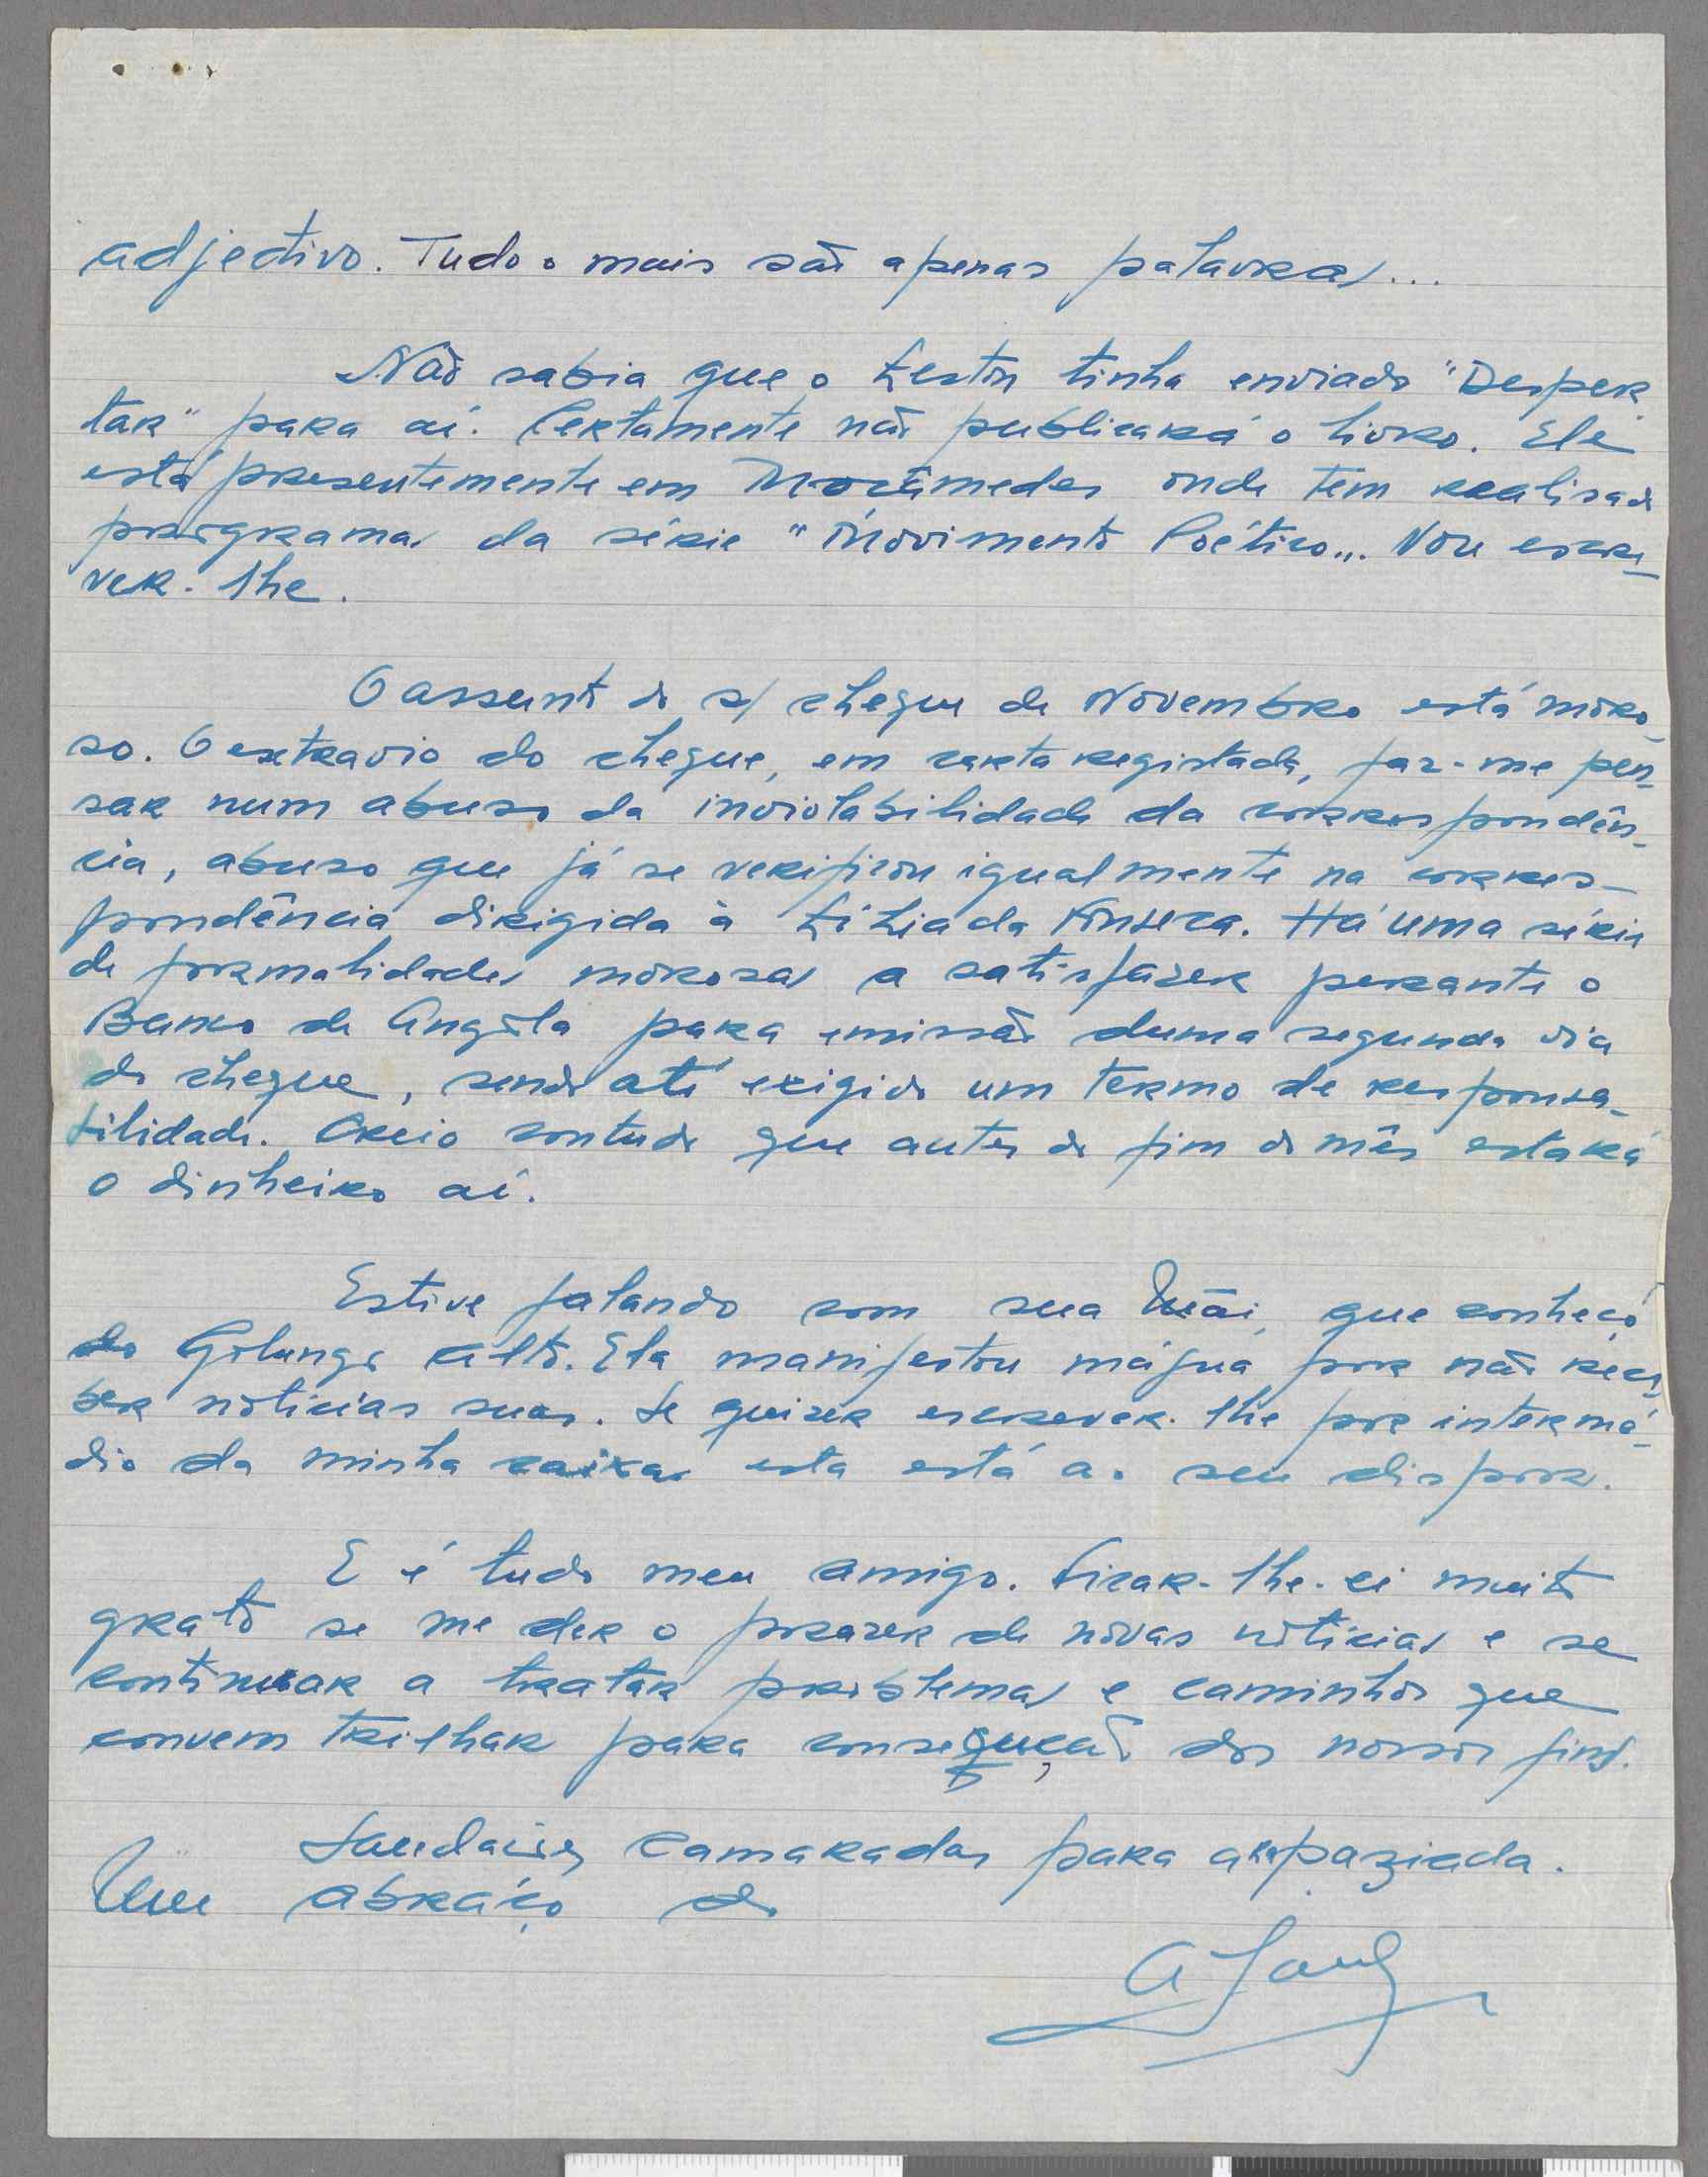 adjectivo. Tudo o mais são apenas palavras...
Não sabia que o Lestro tinha enviado "Desper
tar" para aí. Certamente não publicará o livro. Ele
está presentemente em Moçâmedes onde tem realisado
programas da série "Movimento Poético". Vou escre_
ver-lhe.
O assunto do s/ cheque de Novembro está moro_
so. O extravio do cheque, em carta registada, faz-me pen_
sar num abuso da inviolabilidade da correspondên_
cia, abuso que já se verificou igualmente na corres_
pondência dirigida à Lília da Fonseca. Há uma série
de formalidades morosas a satisfazer perante o
Banco de Angola para emissão duma segunda via
do cheque, sendo até exigido um termo de responsa_
bilidade. Creio contudo que antes do fim do mês estará
o dinheiro aí.
Estive falando com sua Mãi, que conheço
do Golungo Alto. Ela manifestou mágua por não rece_
ber notícias suas. Se quiser escrever-lhe por intermé_
dio da minha caixa esta está ao seu dispor.
E é tudo meu amigo. Ficar-lhe-ei muito
grato se me der o prazer de novas notícias e se
continuar a tratar problemas e caminhos que
convem trilhar para consequção dos nossos fins.
Saudações camaradas para a rapaziada.
Um abraço do